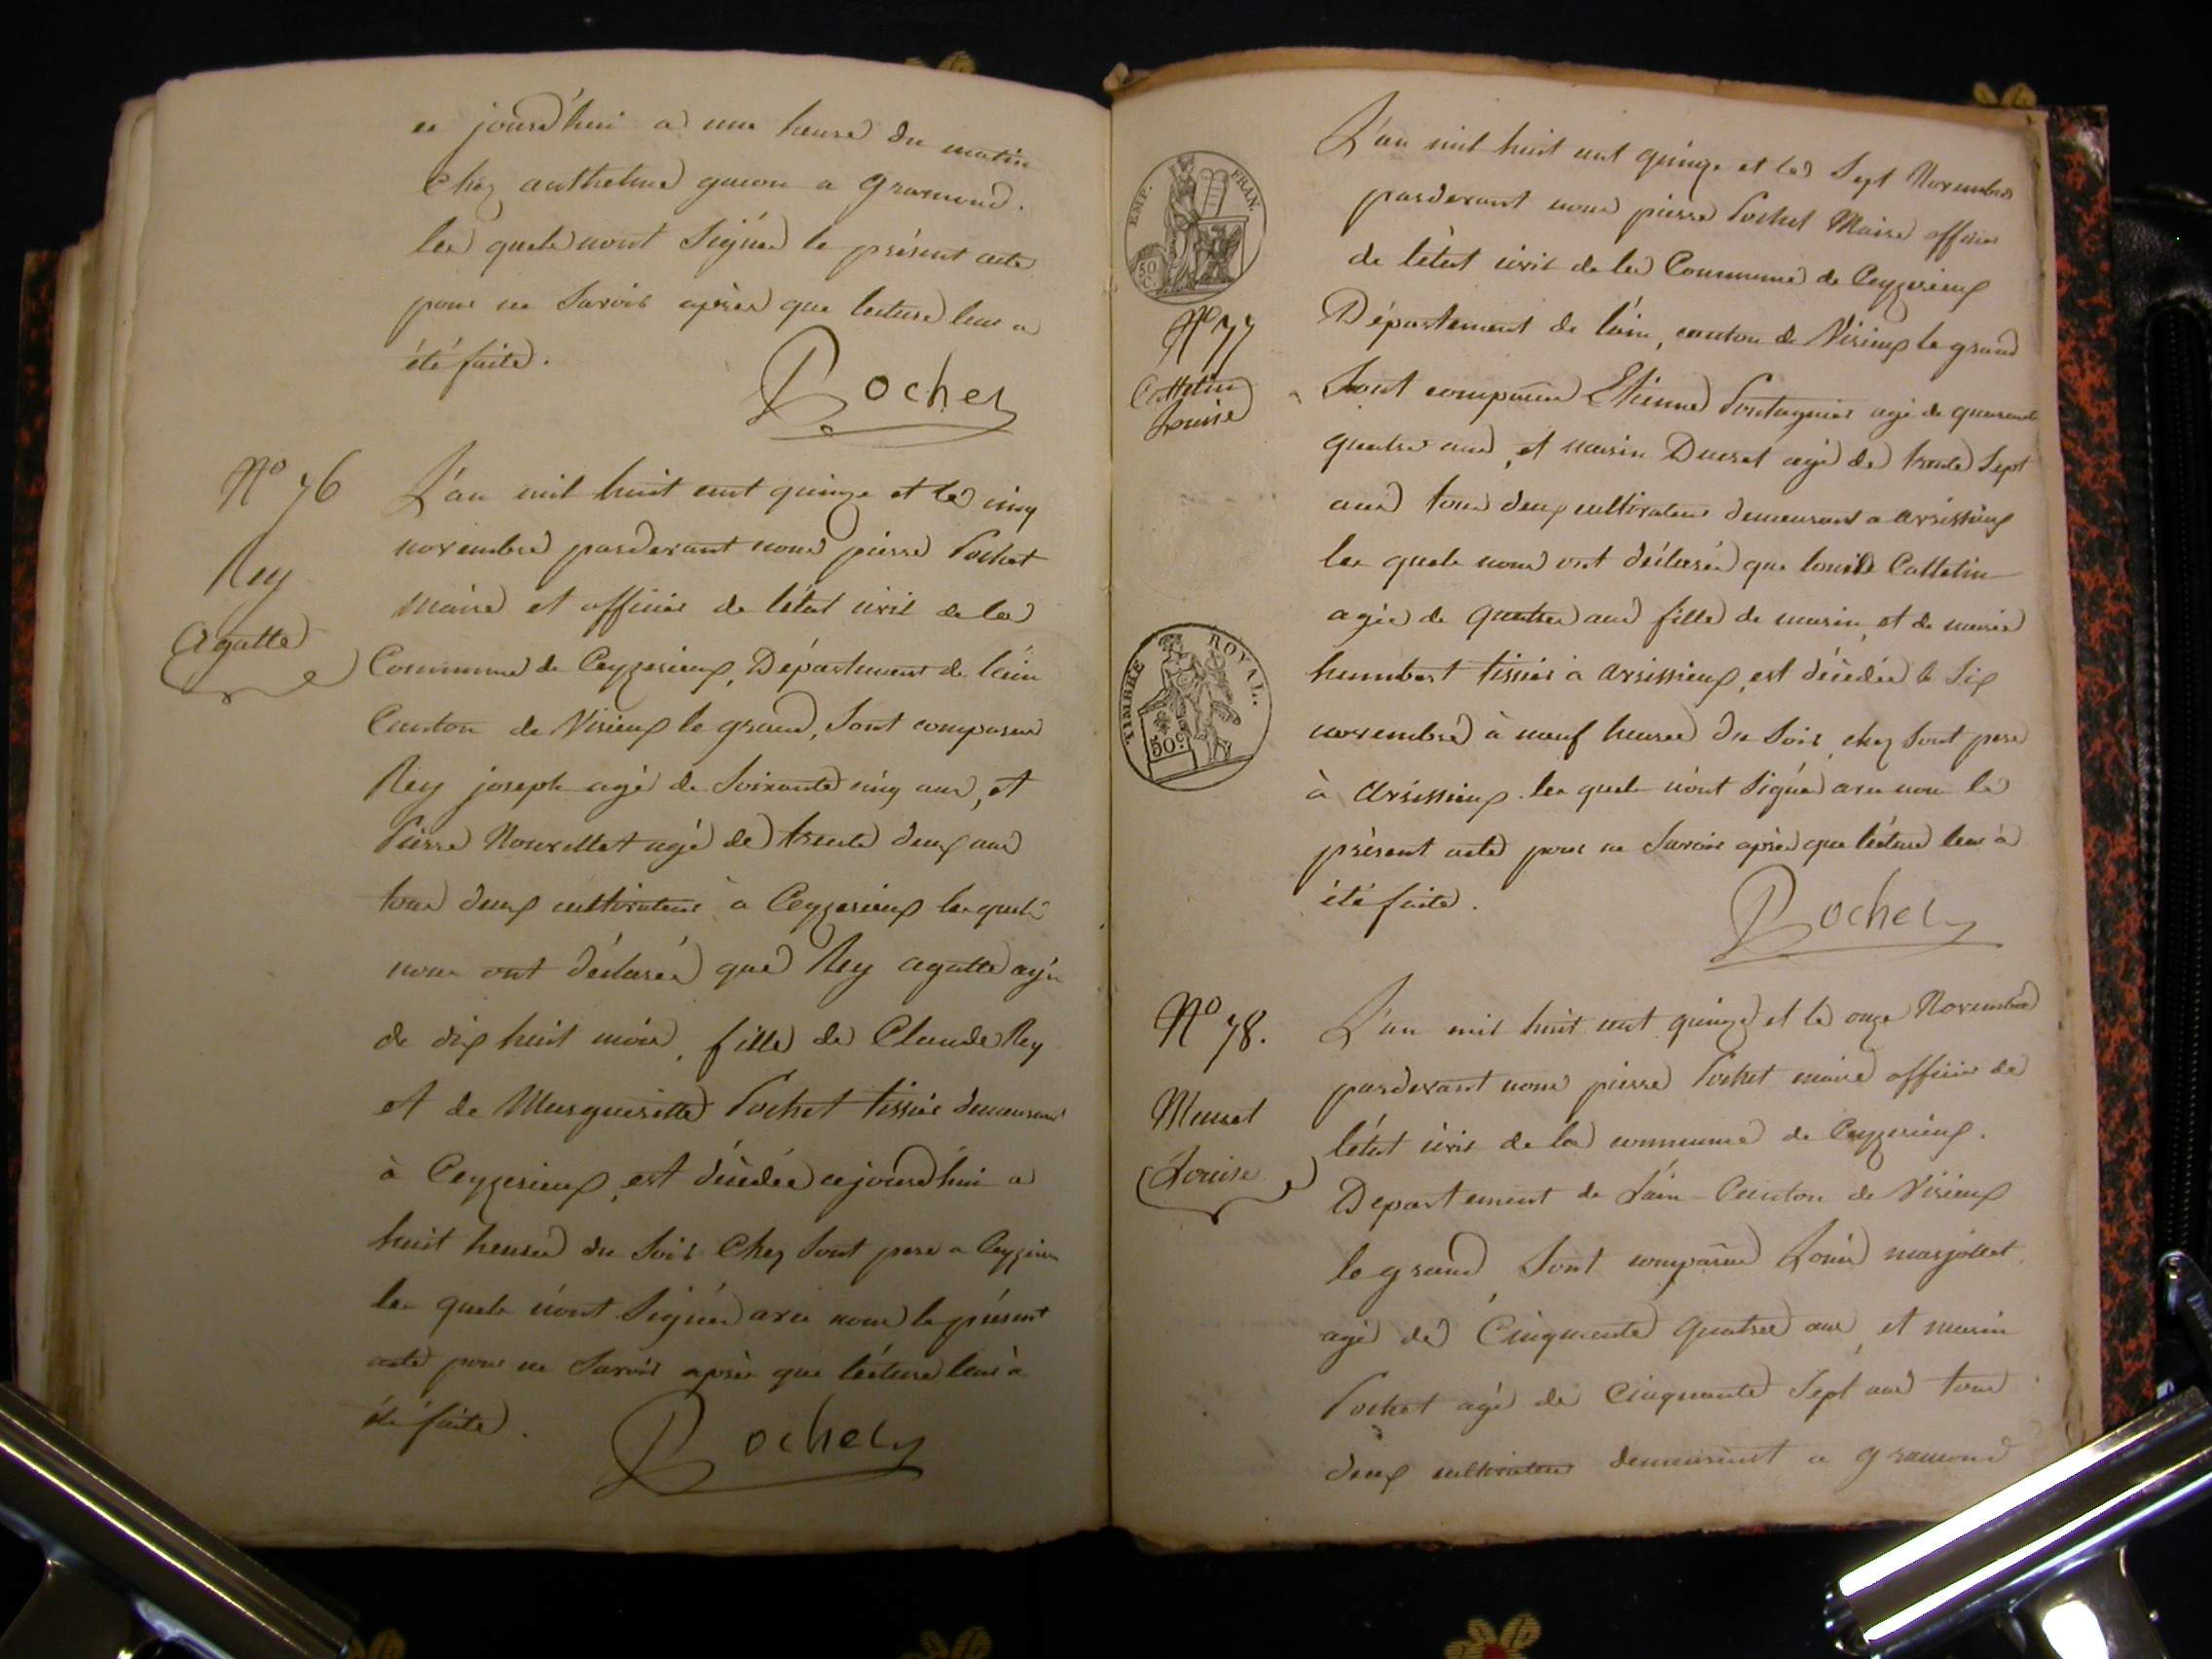 ce jourd'hui a une heure du matin
chez anthelme guion a gramond.
les quels nont Signés le présent acte
pour ne Savoir après que lecture leur a
été faite.
Pochet
N° 76
Rey
Agatte
L'an mil huit cent quinze et le cinq
novembre pardevant nous pierre Pochet
maire et officier de l'état civil de la
Commune de Ceyzerieux, Département de l'ain
Canton de Virieux le grand, Sont comparus
Rey joseph agé de Soixante cinq ans, et
Pierre Nouvellet agé de trente deux ans
tous deux cultivateurs à Ceyzerieux les quels
nous ont déclarés que Rey agatte agée
de dix huit mois, fille de Claude Rey
et de Margueritte Pochet tissier demeurant
à Ceyzerieux, est décédée cejourd'hui a
huit heures du Soir Chez Sont pere a Ceyzerieu
les quels n'ont Signés avec nous le présent
acte pour ne Savoir après que lécture leur à
été faite.
Pochet
EMP. FRAN.
50 C.
N° 77
Cattelin
Louise
TIMBRE ROYAL.
50c
L'an mil huit cent quinze et le Sept Novembre
pardevant nous pierre Pochet Maire officier
de l'état civil de la Commune de Ceyzerieux
Département de l'ain, canton de Virieux le grand
Sont comparus Etienne Pontagnier agé de quarante
quatre ans, et marin Ducret agé de trente Sept
ans tous deux cultivateurs demeurant a avrissieux
les quels nous ont déclarés que louise Cattelin
agée de quatre ans fille de marin, et de marie
humbert tissier à avrissieux, est décédée le Six
novembre à neuf heures du Soir, chez Sont pere
à Avrissieux les quels n'ont Signés avec nous le
présent acte pour ne Savoir après que lécture leur à
été faite.
Pochet
N° 78.
Muret
Louise
L'an mil huit cent quinze et le onze Novembre
pardevant nous pierre Pochet maire officier de
l'état civil de la commune de Ceyzerieux.
Departement de L'ain Canton de Virieux
le grand Sont comparus Louis marjollet
agé de Cinquante quatre ans, et marin
Pochet agé de Cinquante Sept ans tous
deux cultivateurs demeurant a gramond